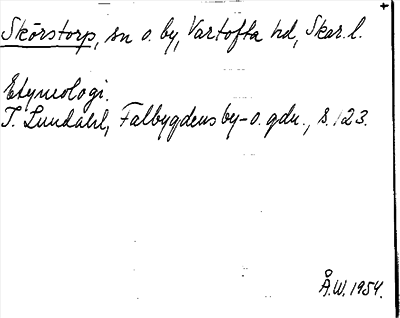 +
Skörstorp, sn o. by, Vartofta hd, Skar. l.
Etymologi.
I. Lundahl, Falbygdens by- o. gdn., s. 123.
Å.W. 1954.